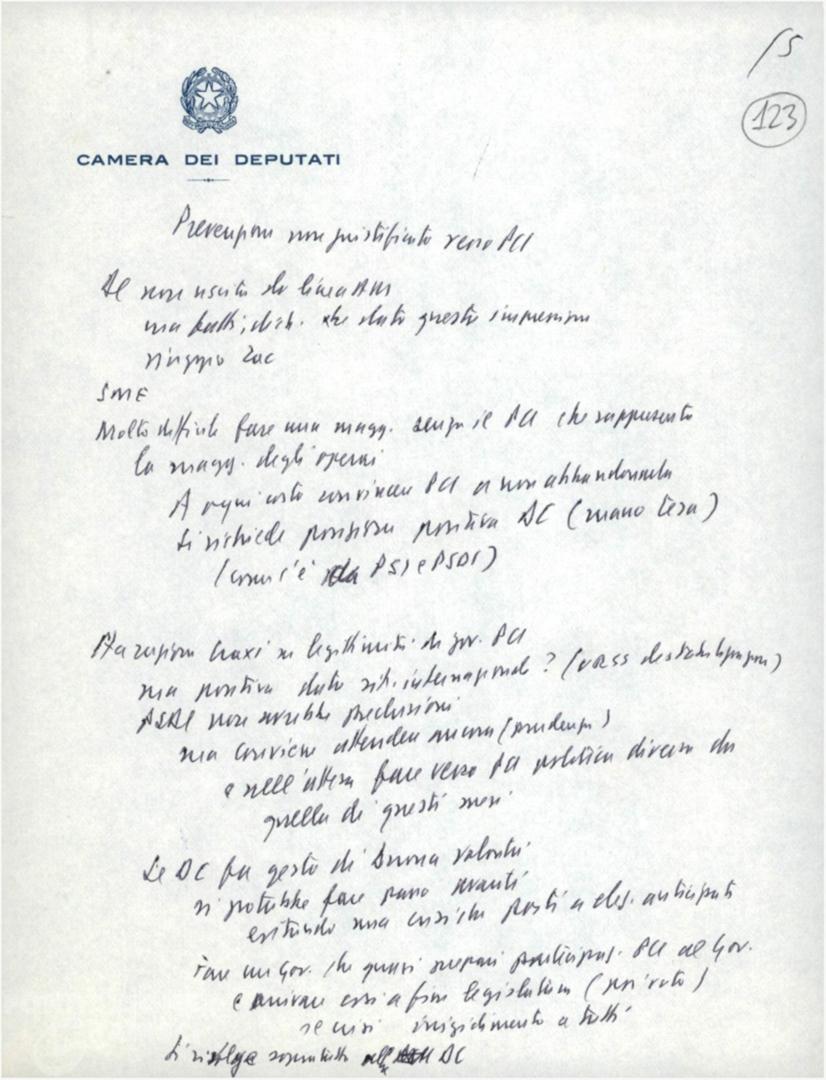 /5
123
CAMERA DEI DEPUTATI
Prevenzioni non giustificate verso PCI
non uscita da linea AM
ma fatti, dich. che dato questa impressione
viaggio Zac
SME
Molto difficile fare una magg. senza il PCI che rappresenta
la magg. degli operai
A ogni costo convincere PCI a non abbandonarla
Si richiede posizione positiva DC (mano tesa)
(come c'è da PSI e PSDI)
Craxi su legittimità di gov. PCI
ma positiva dato sit. internazionale? (URSS destabilizzazione)
PSDI non avrebbe preclusioni
ma conviene attendere ancora (prudenza)
e nell'attesa fare verso PCI politica diversa da
quella di questi mesi
Se DC fa gesto di buona volontà
si potrebbe fare passo avanti
evitando una crisi che porti a elez. anticipate
Fare un Gov. che quasi prepari partecipaz. PCI al Gov.
e arrivare così a fine legislatura (poi voto)
se crisi irrigidimento a tutti
Si rivolge soprattutto DC